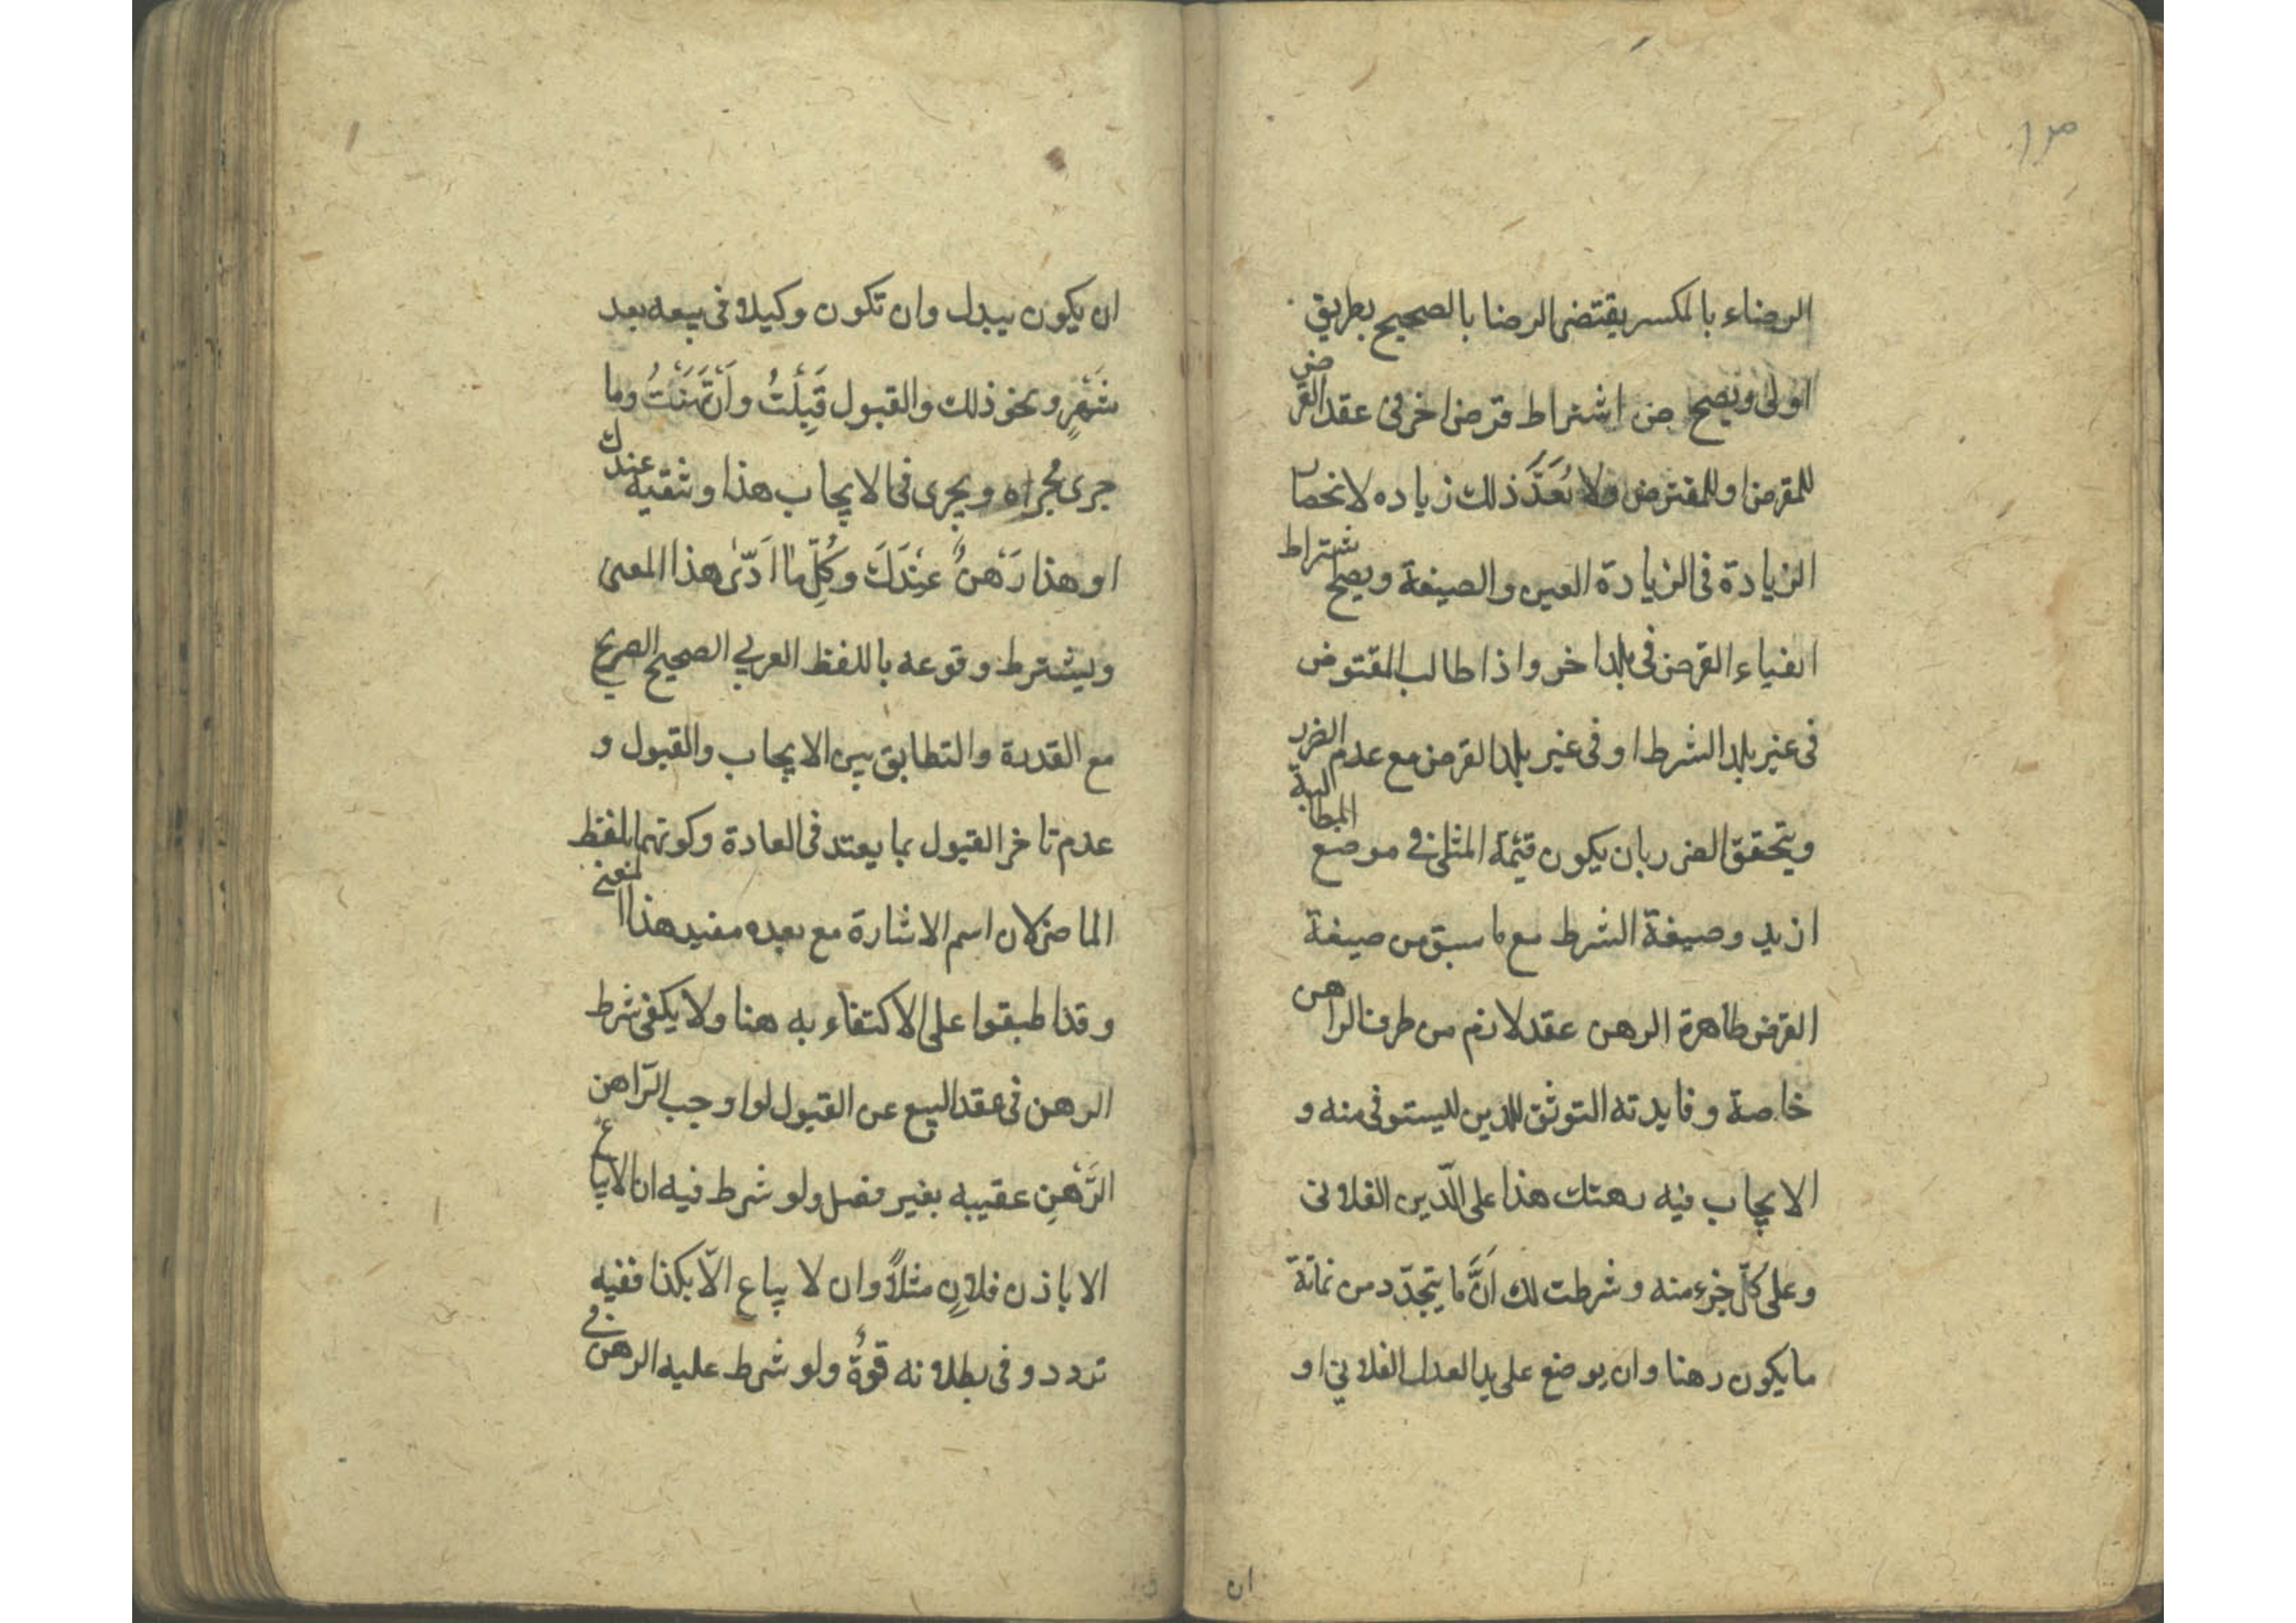 الرضاء بالمكسر يقتضى الرضا بالصحيح بطريق
اولى ويصح من اشتراط قرض اخر فى عقد القرض
للمقرض او للمقترض ولا يُعَدَّ ذلك زياده لانحصار
الزيادة فى الزيادة العين والصيغة ويصح اشتراط
ايفاء القرض فى بلد اخر واذا طالب المقترض
فى غير بلد الشرط او فى غير بلد القرض مع عدم الضرر
ويتحقق الضرر بان يكون قيمة المثلى فى موضع المطالبة
ازيد وصيغة الشرط مع ما سبق من صيغة
القرض ظاهرة الرهن عقد لازم من طرف الراهن
خاصة وفايدته التوثق للدين ليستوفى منه و
الايجاب فيه رهنتك هذا على الدّين الفلانى
وعلى كلّ جزء منه وشرطت لك اَنَّ ما يتجدّد من نمائة
ما يكون رهنا وان يوضع على يد العدل الفلاني او
ان
ان يكون بيدك وان تكون وكيلا فى بيعه بعد
شَهْرٍ ونحو ذلك والقبول قَبِلْتُ واَرْتَهَنْتُ وما
جرى مُجراه ويجرى فى الايجاب هذا وثيقة عندك
او هذا رَهْنٌ عِنْدَكَ وكُلِّ ما اَدّىٰ هذا المعنى
ويشترط وقوعه باللفظ العربي الصحيح الصريح
مع القدرة والتطابق بين الايجاب والقبول و
عدم تاخر القبول بما يعتد فى العادة وكونهما بلفظ
الماضى لان اسم الاشارة مع بعده مفيد هذا المعنى
وقد اطبقوا على الاكتفاء به هنا ولا يكفى شرط
الرهن فى عقد البيع عن القبول لو اوجب الرّاهن
الرَّهْنِ عقيبه بغير فصل ولو شرط فيه ان لا يباع
الا باذن فلانٍ مثلاً وان لا يباع الّا بكذا ففيه
تردد و فى بطلانه قوةٌ ولو شرط عليه الرهن فى